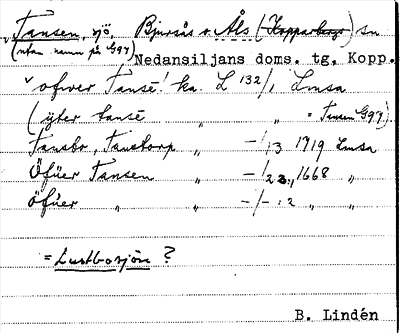 v Tansen, sjö, Bjursås o. Åls (Kopparbergs) sn
(utan namn på G97) Nedansiljans doms. tg, Kopp.
v ofwer Tansé! ka. L 132/1 Lmsa
(ytter tansé „ „ = Tansen G97)
Tansbo, Tanstorp „ -/13 1719 Lmsa
Öfüer Tansen „ -/23., 1668 „
Öfüer „ „ -/- :2 „ „
= Lustbosjön ?
B. Lindén